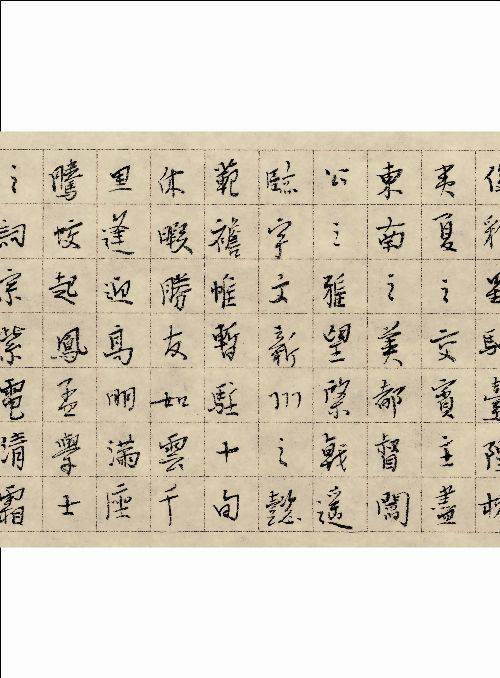 俊彩星馳臺隍枕
夷夏之交賓主盡
東南之美都督閻
公之雅望棨戟遥
臨宇文新州之懿
範襜帷暫駐十旬
休暇勝友如雲千
里逢迎高朋滿座
騰蛟起鳳孟學士
之詞宗紫電清霜